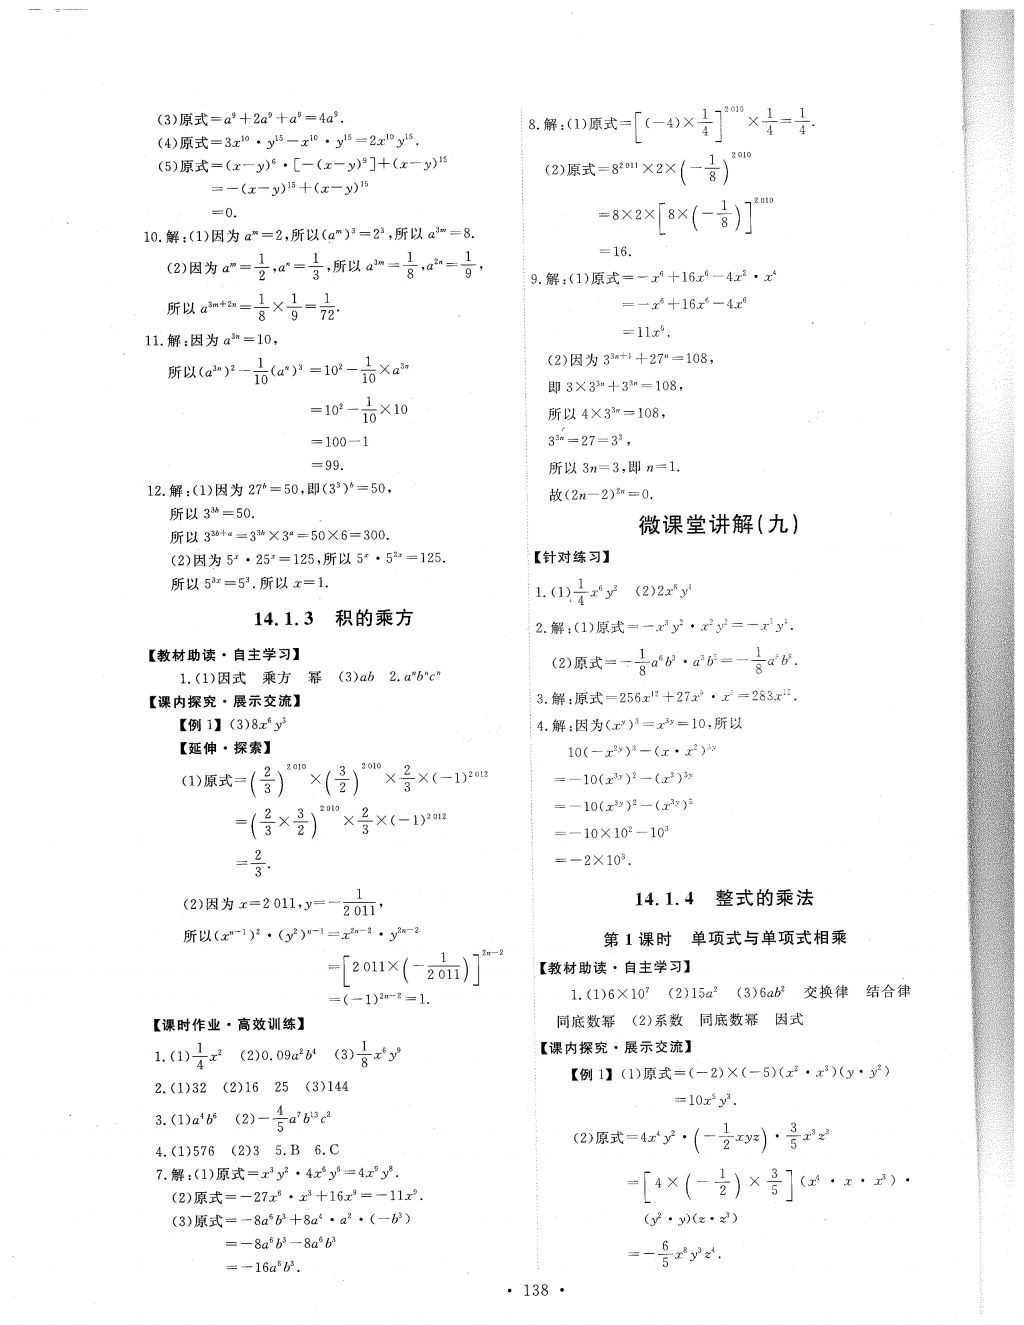 (3)原式=a⁹+2a⁹+a⁹=4a⁹.
(4)原式=3x¹⁰·y¹⁵-x¹⁰·y¹⁵=2x¹⁰y¹⁵.
(5)原式=(x-y)⁶·[-(x-y)⁹]+(x-y)¹⁵
=-(x-y)¹⁵+(x-y)¹⁵
=0.
10.解:(1)因为 aᵐ=2,所以(aᵐ)³=2³,所以 a³ᵐ=8.
(2)因为 aᵐ=1/2,aⁿ=1/3,所以 a³ᵐ=1/8,a²ⁿ=1/9,
所以 a³ᵐ⁺²ⁿ=1/8×1/9=1/72.
11.解:因为 a³ⁿ=10,
所以(a³ⁿ)²-1/10(aⁿ)³=10²-1/10×a³ⁿ
=10²-1/10×10
=100-1
=99.
12.解:(1)因为 27ᵇ=50,即(3³)ᵇ=50,
所以 3³ᵇ=50.
所以 3³ᵇ⁺ᵃ=3³ᵇ×3ᵃ=50×6=300.
(2)因为 5ˣ·25ˣ=125,所以 5ˣ·5²ˣ=125.
所以 5³ˣ=5³.所以 x=1.
14.1.3 积的乘方
【教材助读·自主学习】
1.(1)因式 乘方 幂 (3)ab 2.aⁿbⁿcⁿ
【课内探究·展示交流】
【例1】(3)8x⁶y³
【延伸·探索】
(1)原式=(2/3)²⁰¹⁰×(3/2)²⁰¹⁰×2/3×(-1)²⁰¹²
=(2/3×3/2)²⁰¹⁰×2/3×(-1)²⁰¹²
=2/3.
(2)因为 x=2 011,y=-1/2 011,
所以(xⁿ⁻¹)²·(y²)ⁿ⁻¹=x²ⁿ⁻²·y²ⁿ⁻²
=[2 011×(-1/2 011)]²ⁿ⁻²
=(-1)²ⁿ⁻²=1.
【课时作业·高效训练】
1.(1)1/4x² (2)0.09a²b⁴ (3)1/8x⁶y⁹
2.(1)32 (2)16 25 (3)144
3.(1)a⁴b⁶ (2)-4/5a⁷b¹³c²
4.(1)576 (2)3 5.B 6.C
7.解:(1)原式=x³y²·4x⁶y⁶=4x⁹y⁸.
(2)原式=-27x⁶·x³+16x⁹=-11x⁹.
(3)原式=-8a⁶b³+8a⁴·a²·(-b³)
=-8a⁶b³-8a⁶b³
=-16a⁶b³.
8.解:(1)原式=[(-4)×1/4]²⁰¹⁰×1/4=1/4.
(2)原式=8²⁰¹¹×2×(-1/8)²⁰¹⁰
=8×2×[8×(-1/8)]²⁰¹⁰
=16.
9.解:(1)原式=-x⁶+16x⁶-4x²·x⁴
=-x⁶+16x⁶-4x⁶
=11x⁶.
(2)因为 3³ⁿ⁺¹+27ⁿ=108,
即 3×3³ⁿ+3³ⁿ=108,
所以 4×3³ⁿ=108,
3³ⁿ=27=3³,
所以 3n=3,即 n=1.
故(2n-2)²ⁿ=0.
微课堂讲解(九)
【针对练习】
1.(1)1/4x⁶y² (2)2x⁸y⁴
2.解:(1)原式=-x³y²·x²y²=-x⁵y⁴.
(2)原式=-1/8a⁶b³·a³b⁵=-1/8a⁹b⁸.
3.解:原式=256x¹²+27x⁹·x³=283x¹².
4.解:因为(xʸ)³=x³ʸ=10,所以
10(-x²ʸ)³-(x·x²)³ʸ
=-10(x³ʸ)²-(x³)³ʸ
=-10(x³ʸ)²-(x³ʸ)³
=-10×10²-10³
=-2×10³.
14.1.4 整式的乘法
第1课时 单项式与单项式相乘
【教材助读·自主学习】
1.(1)6×10⁷ (2)15a² (3)6ab² 交换律 结合律
同底数幂 (2)系数 同底数幂 因式
【课内探究·展示交流】
【例1】(1)原式=(-2)×(-5)(x²·x³)(y·y²)
=10x⁵y³.
(2)原式=4x⁴y²·(-1/2xyz)·3/5x³z³
=[4×(-1/2)×3/5](x⁴·x·x³)·
(y²·y)(z·z³)
=-6/5x⁸y³z⁴.
·138·